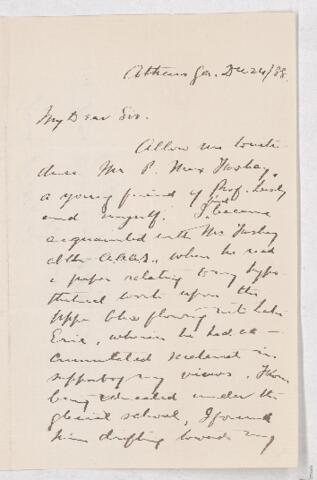 Athens Ga. Dec 24/88.
My Dear Sir.
Allow me to intro-
duce Mr P. Max Foshay,
a young friend of Prof. Lesley
and myself. I became
acquainted with Mr Foshay
at the A.A.A.S., when he read
a paper relating to my hypo-
thetical work upon the
upper Ohio flowing into Lake
Erie, wherein he had ac-
cumulated material in
supporting my views. From
being educated under the
glacial school, I found
him drifting towards my